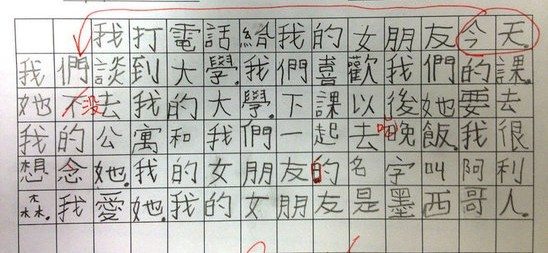 我打電話給我的女朋友今天.
我們談到大學.我們喜歡我們的課.
她不没去我的大學.下課以後她要去
我的公寓和我們一起去吃晚飯.我很
想念她.我的女朋友的名字叫阿利
森.我愛她.我的女朋友是墨西哥人.